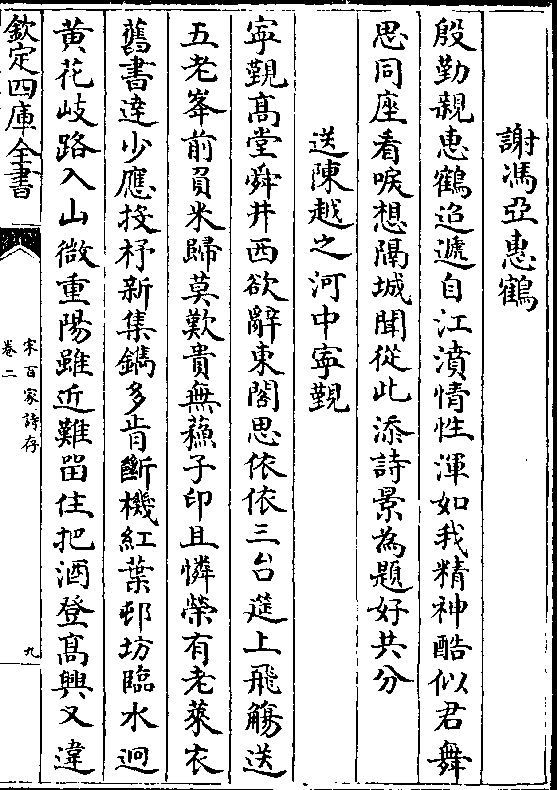 謝馮亞惠鶴
殷勤親惠鶴迢遞自江濆情性渾如我精神酷似君舞
思同座看唳想隔城聞從此添詩景為題好共分
送陳越之河中寧覲
寧覲髙堂舜井西欲辭東閣思依依三台筵上飛觴送
五老峯前負米歸莫歎貴無蘓子印且憐榮有老萊衣
舊書違少應投杼新集鐫多肯斷機紅葉邨坊臨水逈
黄花岐路入山微重陽雖近難畱住把酒登髙興又違
欽定四庫全書
宋百家詩存
卷二
九